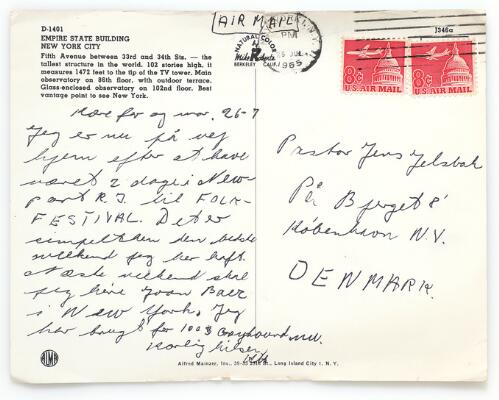 D-1401
EMPIRE STATE BUILDING
NEW YORK CITY
Fifth Avenue between 33rd and 34th Sts. — the
tallest structure in the world. 102 stories high, it
measures 1472 feet to the tip of the TV tower. Main
observatory on 86th floor, with outdoor terrace.
Glass-enclosed observatory on 102nd floor. Best
vantage point to see New York.
Kære far og mor. 26-7
Jeg er nu på vej
hjem efter at have
været 2 dage i New-
port R.I. til FOLK-
FESTIVAL. Det er
simpelthen den bedste
weekend jeg har haft.
Næste weekend skal
jeg høre Joan Baez
i New York. Jeg
har brugt for 100$ Greyhound
Kærlig hilsen
AIR MAIL
PM
JUL
1965
NATURAL COLOR
BERKELEY CALIF.
J346a
8¢
U.S. AIR MAIL
8¢
U.S. AIR MAIL
Pastor Jens Jelsbak
På Bjerget 8
København N.V.
DENMARK.
Alfred Mainzer, Inc., 39-33 29th St., Long Island City 1, N. Y.